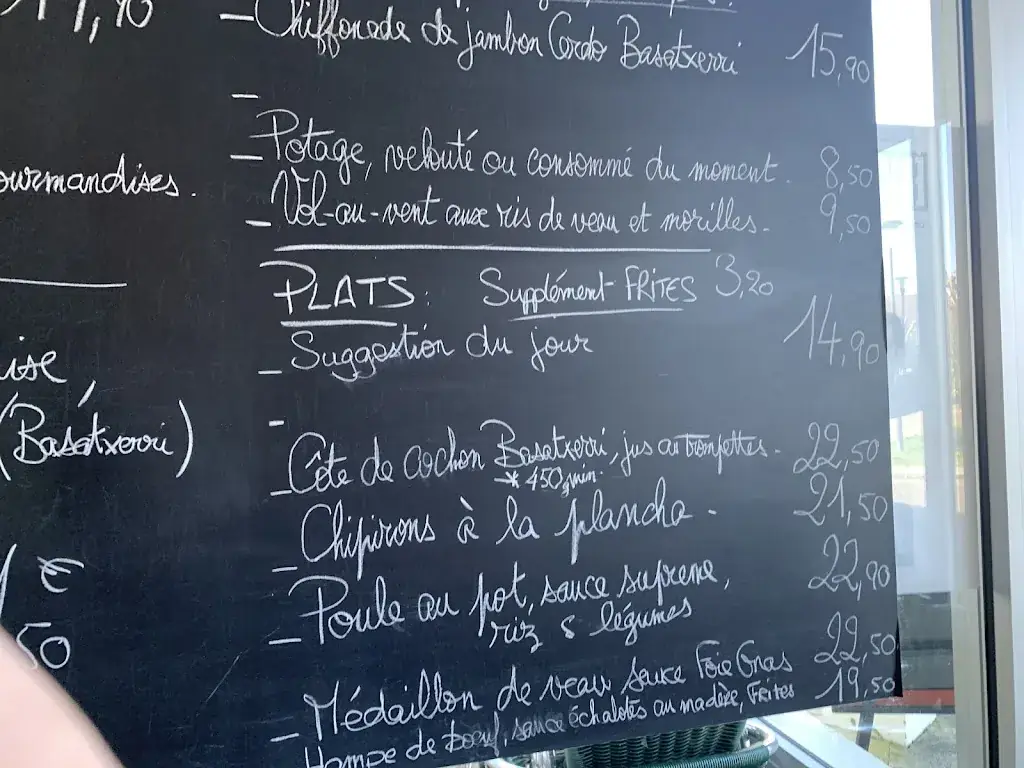 Chiffonade de jambon Cerdo Basatxerri 15,90
Potage, velouté ou consommé du moment. 8,50
Vol-au-vent aux ris de veau et morilles. 9,50
ourmandises.
PLATS: Supplément FRITES 3,20
Suggestion du jour 14,90
ise,
(Basatxerri)
Côte de cochon Basatxerri, jus au trompettes. 22,50
* 450g min.
Chipirons à la plancha. 21,50
Poule au pot, sauce supreme, 22,90
riz & légumes
€
50
Médaillon de veau sauce Foie Gras 22,50
Hampe de boeuf, sauce échalotes au madère, Frites 19,50